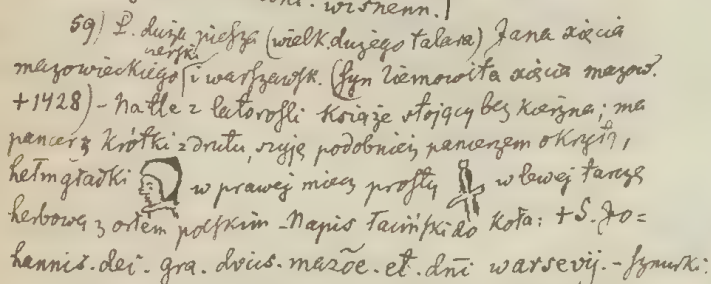 wisnenn.]
59) P. duża piesza (wielk. dużego talara) Jana xięcia
czerski
mazowieckiego i warszawsk. (syn Ziemowita xięcia mazow.
+1428) - na tle z latorośli Książe stojący bez kołnierza; ma
pancerz krótki z drutu, szyję podobnież pancerzem okrytą,
hełm gładki w prawej miecz prosty w lewej tarczę
herbową z orłem polskim - Napis łaciński do koła: + S. Jo=
hannis. dei. gra. dvcis. mazōe. et. dnī warsevij. - sznurki.